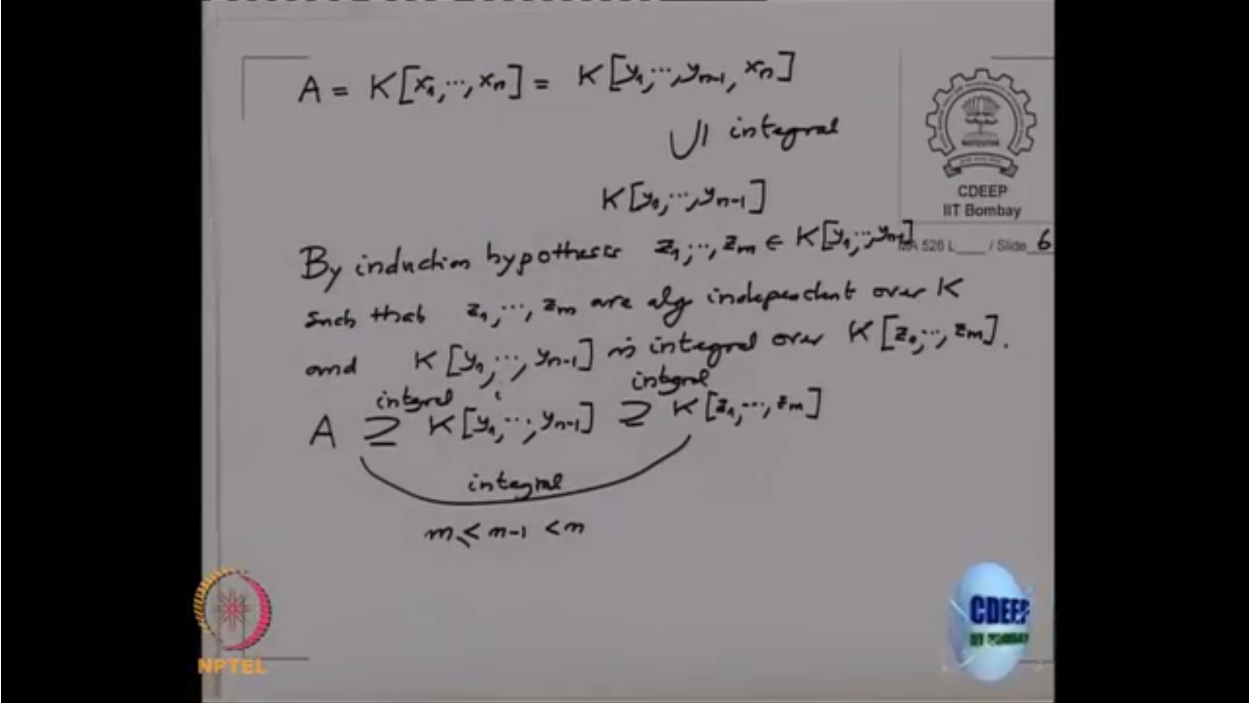 A = K[x₁,…,xₙ] = K[y₁,…,yₙ₋₁, xₙ]
∪| integral
K[y₁,…,yₙ₋₁]
CDEEP
IIT Bombay
MA 526 L____ / Slide 6
By induction hypothesis z₁,…,zₘ ∈ K[y₁,…,yₙ₋₁]
such that z₁,…,zₘ are alg independent over K
and K[y₁,…,yₙ₋₁] is integral over K[z₁,…,zₘ].
integral integral
A ⊇ K[y₁,…,yₙ₋₁] ⊇ K[z₁,…,zₘ]
integral
m ≤ n-1 < n
NPTEL
CDEEP
IIT BOMBAY